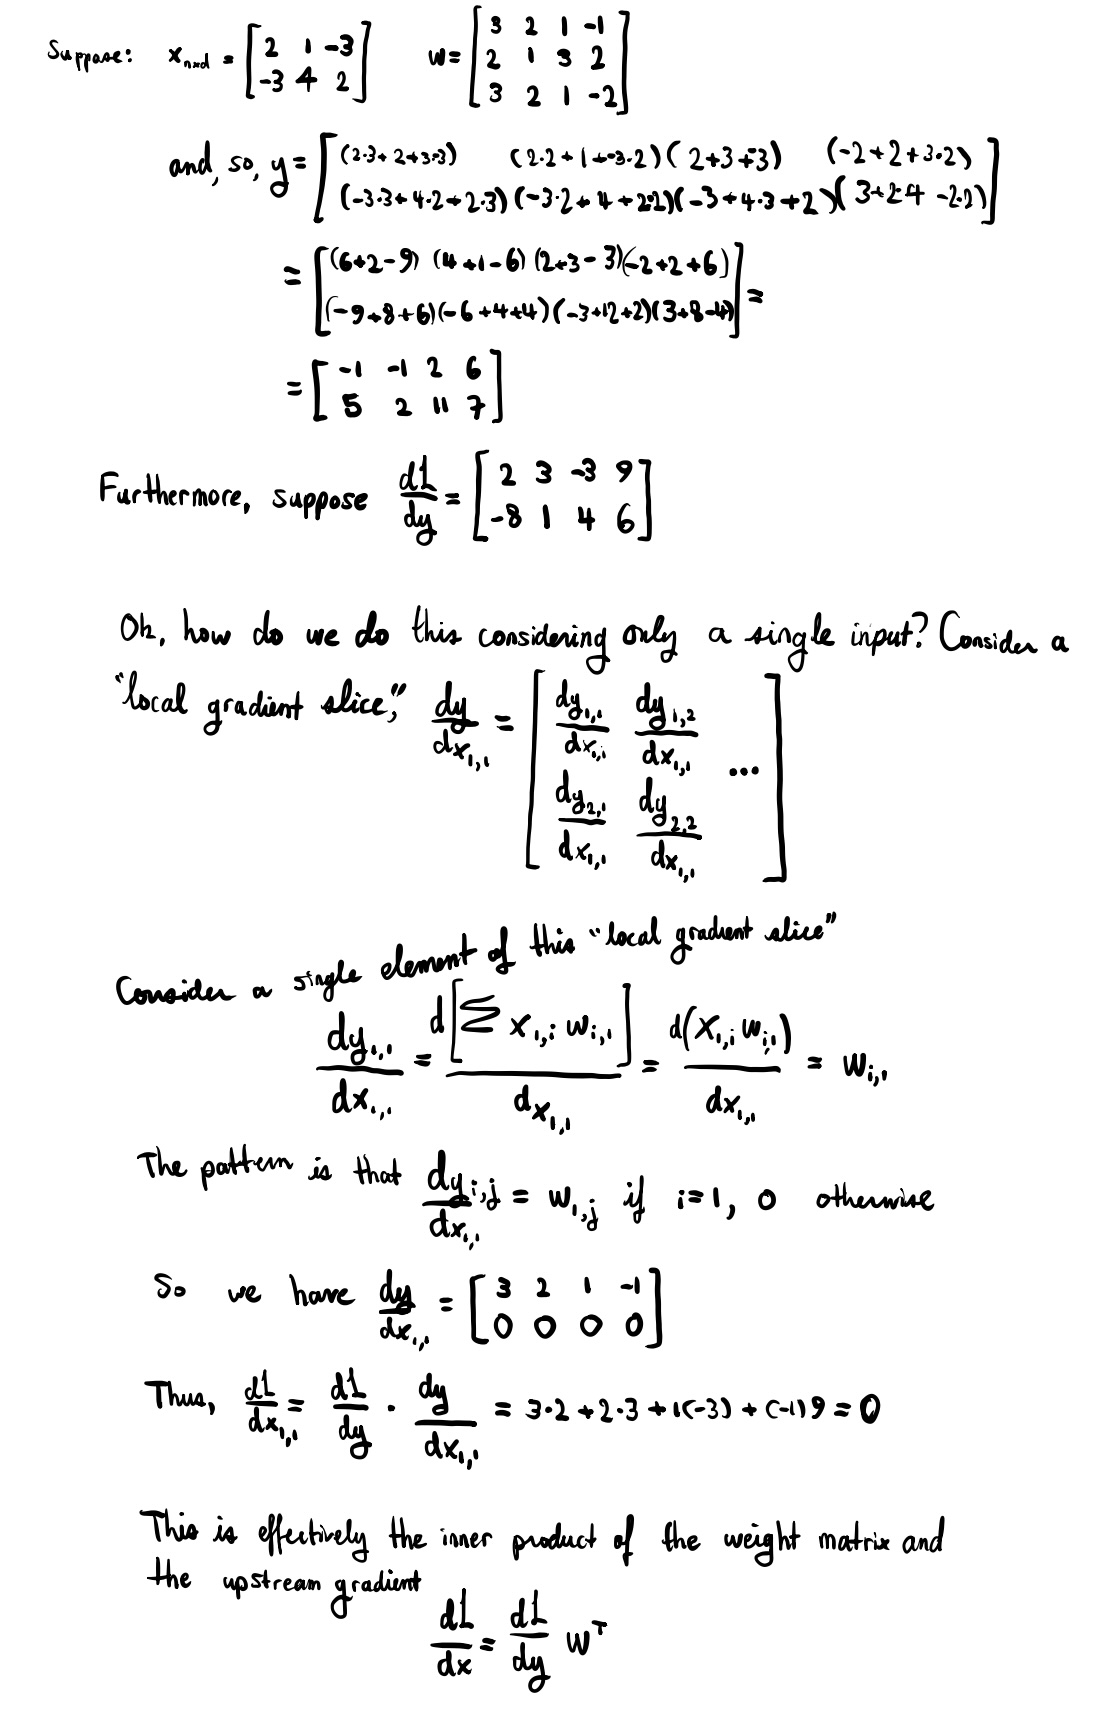 Suppose: x_{n×d} = [2 1 -3; -3 4 2] w = [3 2 1 -1; 2 1 3 2; 3 2 1 -2]
and, so, y = [(2·3 + 2 + -3·3) (2·2 + 1 + -3·2) (2 + 3 + -3) (-2 + 2 + 3·2);
(-3·3 + 4·2 + 2·3) (-3·2 + 4 + 2·2) (-3 + 4·3 + 2) (3 + 2·4 - 2·2)]
= [(6+2-9) (4+1-6) (2+3-3) (-2+2+6);
(-9+8+6) (-6+4+4) (-3+12+2) (3+8-4)] =
= [-1 -1 2 6; 5 2 11 7]
Furthermore, suppose dL/dy = [2 3 -3 9; -8 1 4 6]
Ok, how do we do this considering only a single input? Consider a
"local gradient slice," dy/dx_{1,1} = [dy_{1,1}/dx_{1,1} dy_{1,2}/dx_{1,1} ...; dy_{2,1}/dx_{1,1} dy_{2,2}/dx_{1,1}]
Consider a single element of this "local gradient slice"
dy_{1,1}/dx_{1,1} = d[Σ x_{1,i} w_{i,1}]/dx_{1,1} = d(x_{1,i} w_{i,1})/dx_{1,1} = w_{i,1}
The pattern is that dy_{i,j}/dx_{1,1} = w_{1,j} if i=1, 0 otherwise
So we have dy/dx_{1,1} = [3 2 1 -1; 0 0 0 0]
Thus, dL/dx_{1,1} = dL/dy · dy/dx_{1,1} = 3·2 + 2·3 + 1(-3) + (-1)9 = 0
This is effectively the inner product of the weight matrix and
the upstream gradient
dL/dx = dL/dy w^T